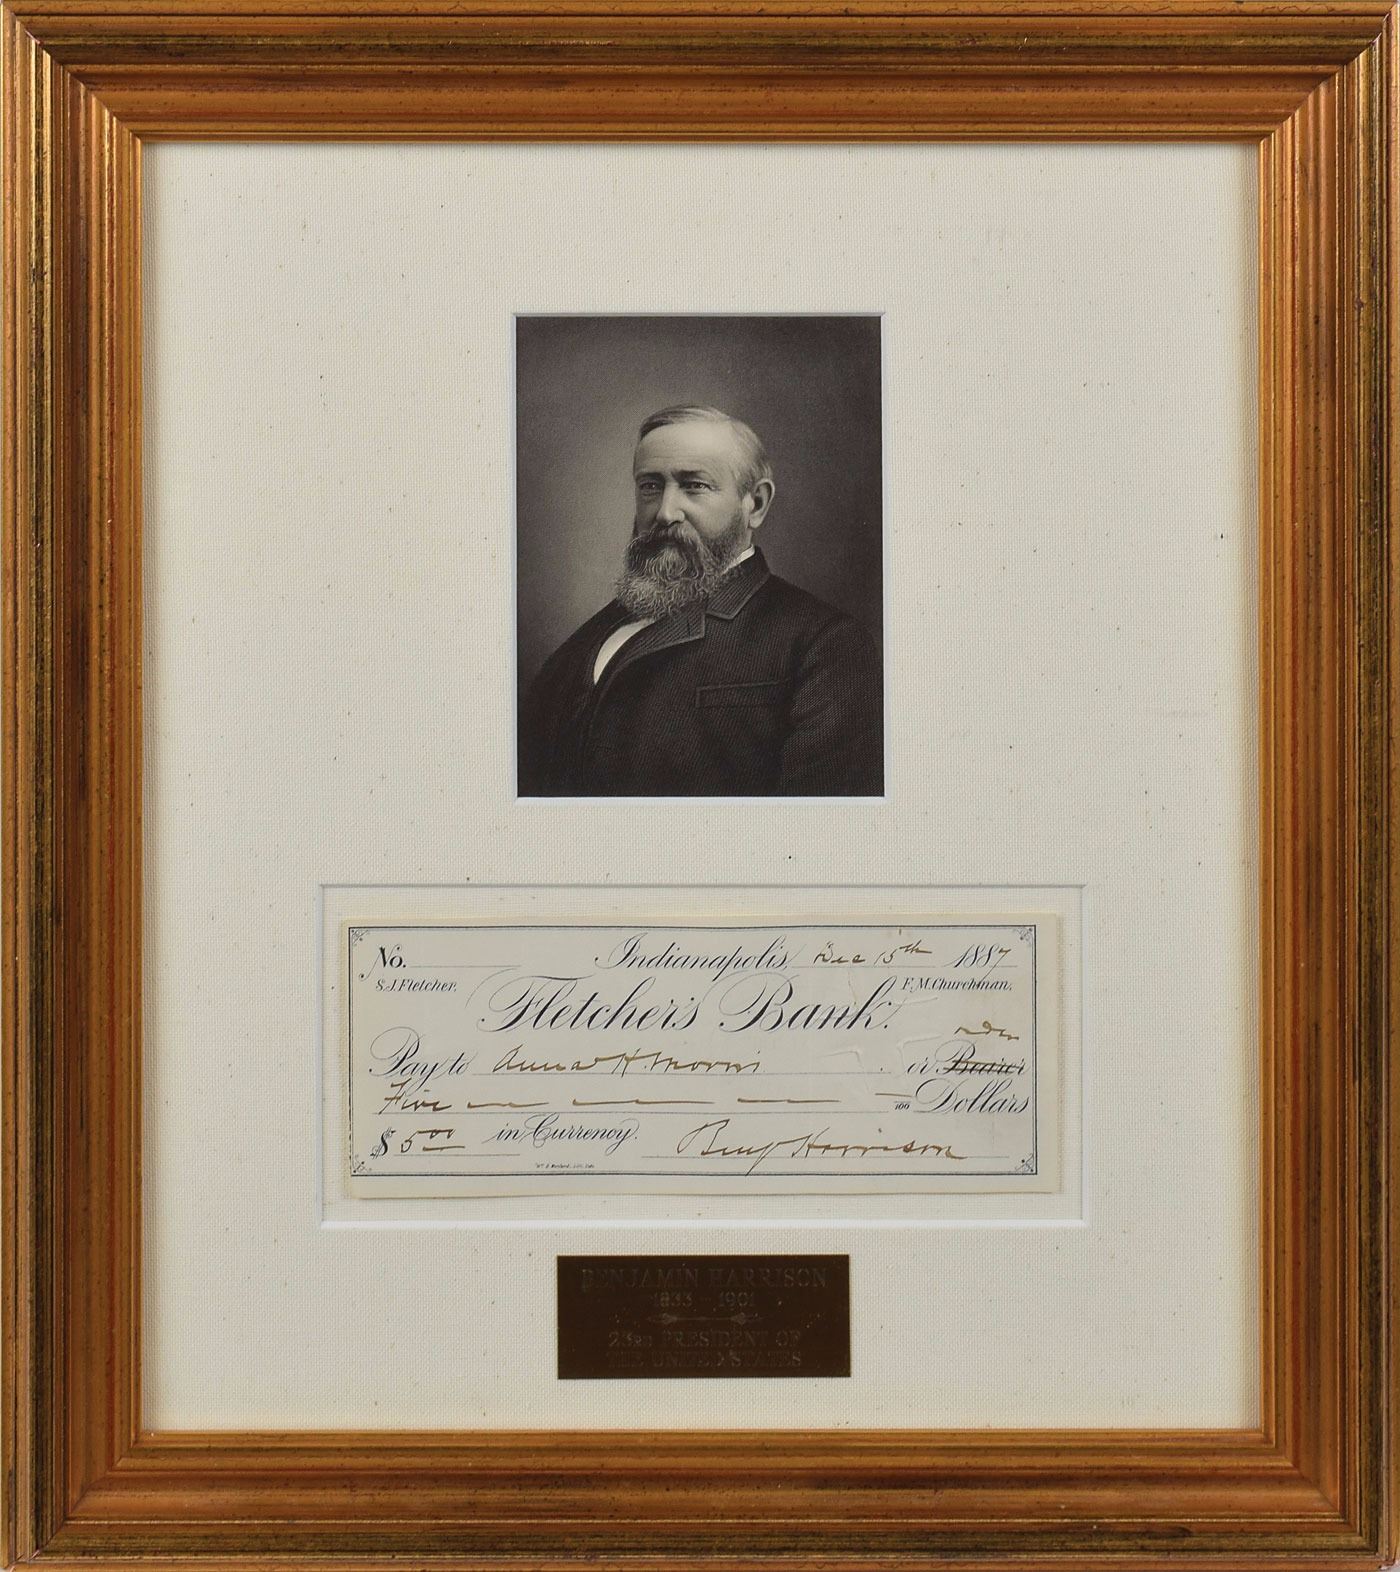 No. Indianapolis, Dec 15th 1887
S.J. Fletcher. F.M. Churchman.
Fletcher's Bank.
order
Pay to Anna H. Morris or Bearer
Five — — — — — /100 Dollars
$ 5.00 in Currency. Benj Harrison
BENJAMIN HARRISON
1833 - 1901
23RD PRESIDENT OF
THE UNITED STATES